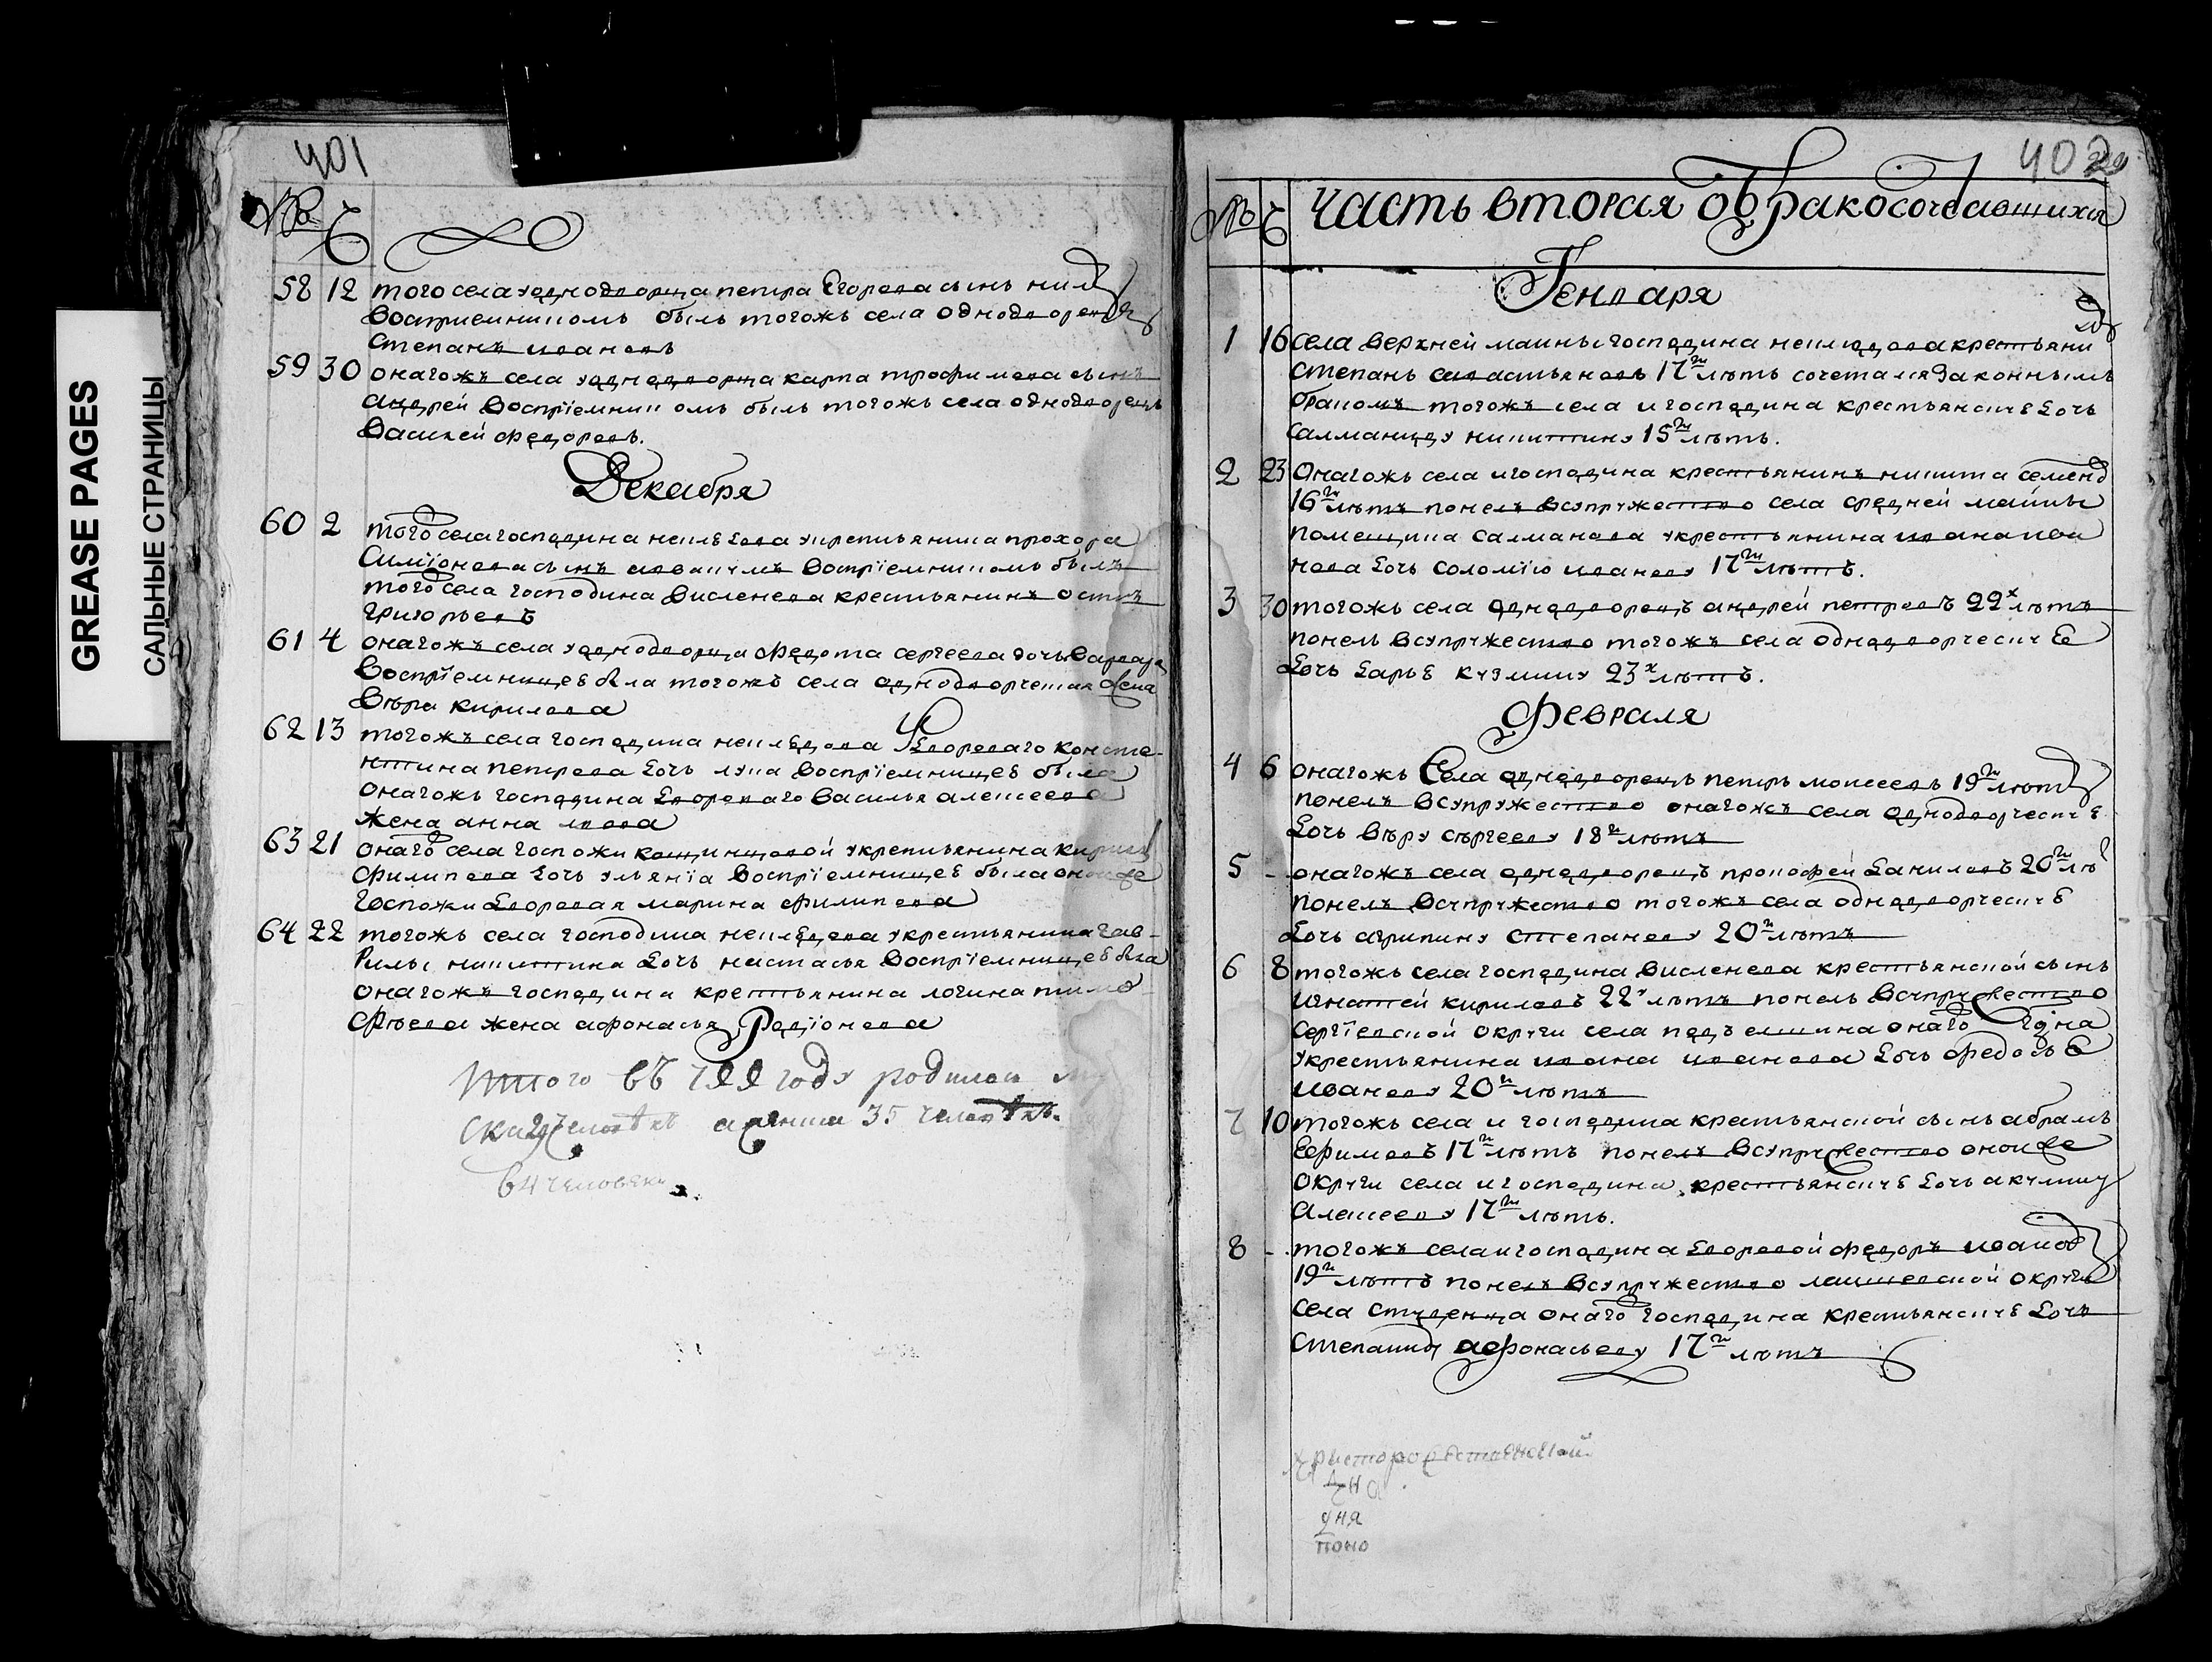 GREASE PAGES
САЛЬНЫЕ СТРАНИЦЫ
401
58 12 того села уоднодворца петра Егорова сынъ нилъ
восприемникомъ былъ тогожъ села однодворецъ
степанъ ивановъ
59 30 онагожъ села уоднодворца карпа трофимова сынъ
андрей воспріемникомъ былъ тогожъ села однодворецъ
василей федоровъ.
Декабря
60 2 того села господина неплюева укрепьянина прохора
симіонова сынъ воспріемникомъ былъ
того села господина висленева крестьянинъ
григорьевъ
61 4 онагожъ села уоднодворца федота сергеева дочь варвара
воспріемницеѣ была тогожъ села однодворческая жена
вѣра кирилова
62 13 тогожъ села господина дворового конста-
нтина петрова дочь воспріемницеѣ была
онагожъ господина дворового василья алексеева
жена анна
63 21 онаго села госпожи укрепьянина кирилы
филипова дочь ульянія воспріемницеѣ была оной же
госпожи дворовая марина филипова
64 22 тогожъ села господина укрестьянина гав-
рилы никитина дочь настасья воспріемницеѣ была
онагожъ господина крестьянина логина тимо-
фѣева жена афонасья Родіонова
Итого въ году родилося
человѣкъ а женска 35 человѣкъ.
64 человека
402
№ Часть вторая о бракосочетавшихся
Генваря
1 16 села верхней маины господина крестьянинъ
степанъ савастьяновъ 17ти лѣтъ сочетался законнымъ
бракомъ тогожъ села и господина крестьянскуѣ дочь
салманиду никитину 15ти лѣтъ.
2 23 Онагожъ села игосподина крестьянинъ никита семеновъ
16ти лѣтъ понелъ всупружество села средней маины
помещика салманова укрестьянина ивана ива
нова дочь соломію иванову 17ти лѣтъ.
3 30 тогожъ села однодворецъ андрей петровъ 22х лѣтъ
понелъ всупружество тогожъ села однодворческуѣ
дочь дарьѣ кузмину 23х лѣтъ.
Февраля
4 6 онагожъ Села однодворецъ петръ моисеевъ 19ти лѣтъ
понелъ всупружество онагожъ села однодворческуѣ
дочь вѣру сѣргееву 18ти лѣтъ
5 - онагожъ села однодворецъ прокофей даниловъ 20ти лѣ
понелъ всупружество тогожъ села однодворческуѣ
дочь агрипину степанову 20ти лѣтъ
6 8 тогожъ села господина висленева крестьянской сынъ
игнатей кириловъ 22х лѣтъ понелъ всупружество
сергіевской округи села онаго гдна
укрестьянина ивана иванова дочь федосьѣ
иванову 20ти лѣтъ
7 10 тогожъ села и господина крестьянской сынъ абрамъ
ефимовъ 17ти лѣтъ понелъ всупружество оной же
округи села игосподина крестьянскуѣ дочь акулину
алексееву 17ти лѣтъ.
8 - тогожъ села и господина дворовой федоръ ивановъ
19ти лѣтъ понелъ всупружество лаишевской округи
села студенца онаго господина крестьянскуѣ дочь
степаниду афонасьеву 17ти лѣтъ
дня
поно